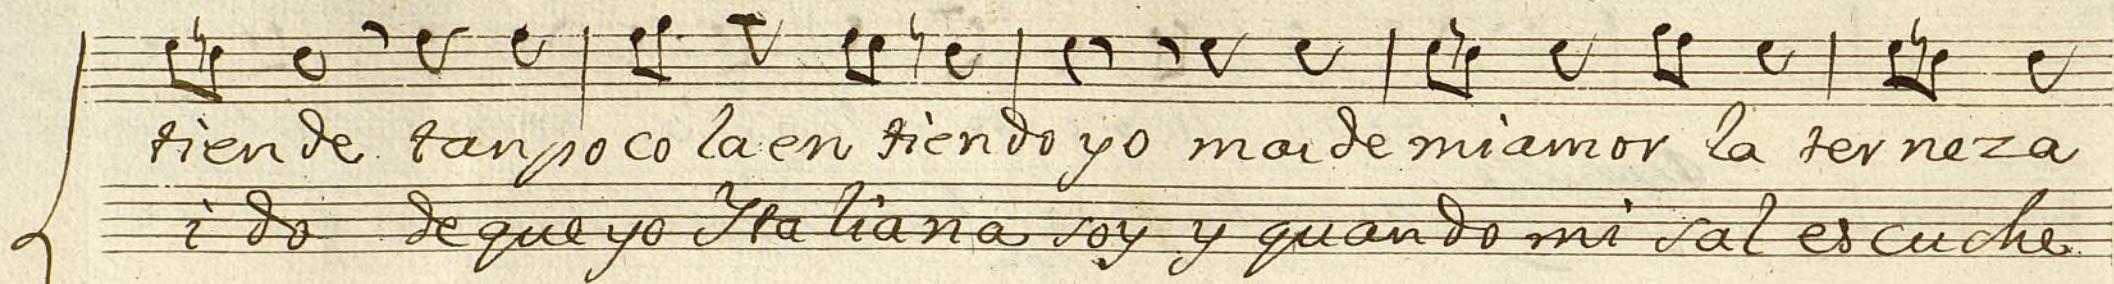 tiende tanpoco la en tiendo yo mas de mi amor la ter neza
i do de que yo Ytaliana soy y quando mi sal escuche